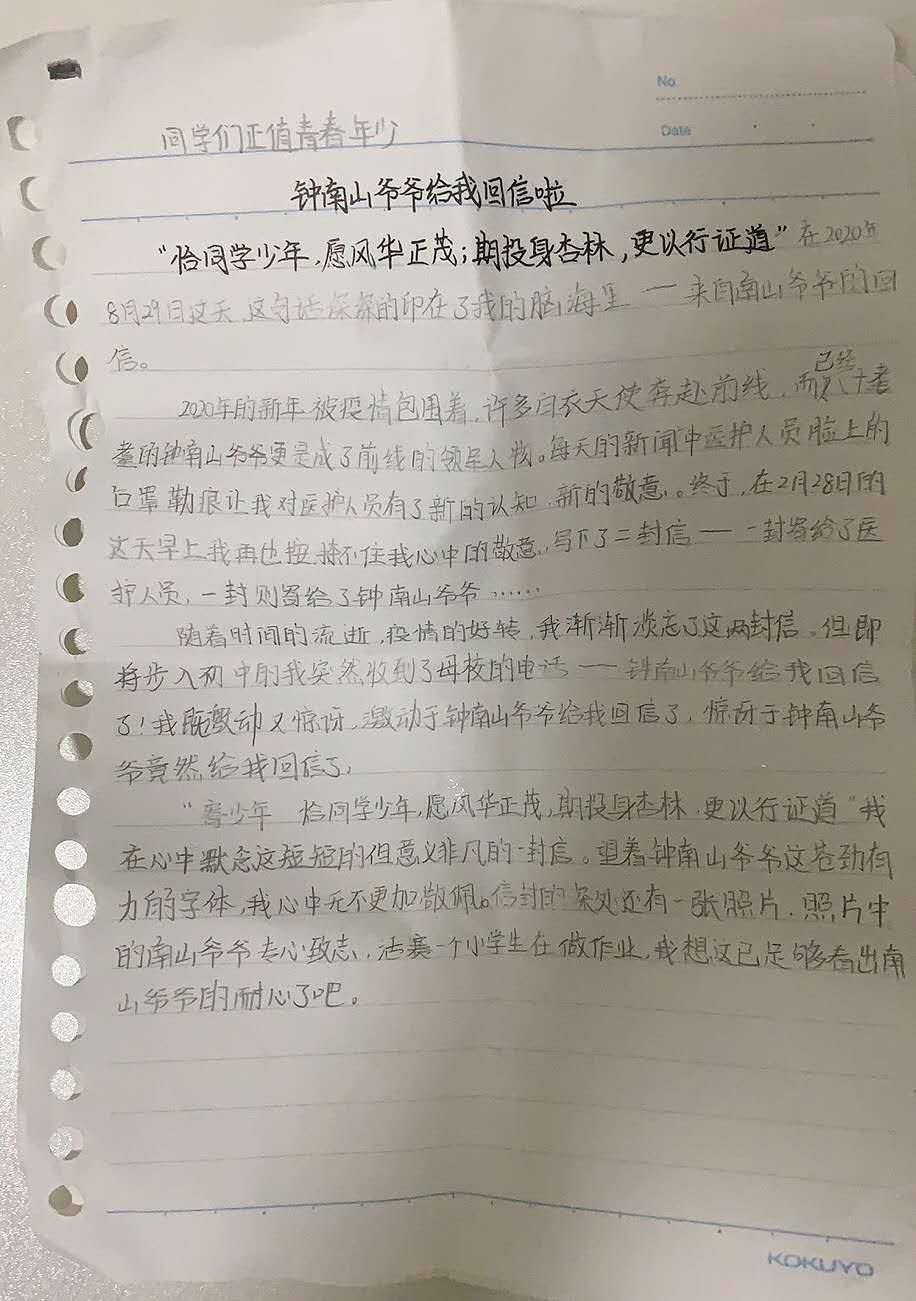 No
Date
同学们正值青春年少
钟南山爷爷给我回信啦
“恰同学少年，愿风华正茂；期投身杏林，更以行证道”在2020年
8月29日这天，这句话深深的印在了我的脑海里——来自南山爷爷的回
信。
已经
2020年的新年被疫情包围着，许多白衣天使奔赴前线，而八十耄
耋的钟南山爷爷更是成了前线的领军人物。每天的新闻中医护人员脸上的
口罩勒痕让我对医护人员有了新的认知，新的敬意。终于，在2月28日的
这天早上我再也按捺不住我心中的敬意，写下了二封信——一封寄给了医
护人员，一封则寄给了钟南山爷爷……
随着时间的流逝，疫情的好转，我渐渐淡忘了这两封信。但即
将步入初中的我突然收到了母校的电话——钟南山爷爷给我回信
了！我既激动又惊讶，激动于钟南山爷爷给我回信了，惊讶于钟南山爷
爷竟然给我回信了，
“ 春少年 恰同学少年，愿风华正茂，期投身杏林，更以行证道“我
在心中默念这短短的但意义非凡的一封信。望着钟南山爷爷这苍劲有
力的字体，我心中无不更加敬佩。信封的 处还有一张照片，照片中
的南山爷爷专心致志，活赛一个小学生在做作业，我想这已足够看出南
山爷爷的耐心了吧。
KOKUYO